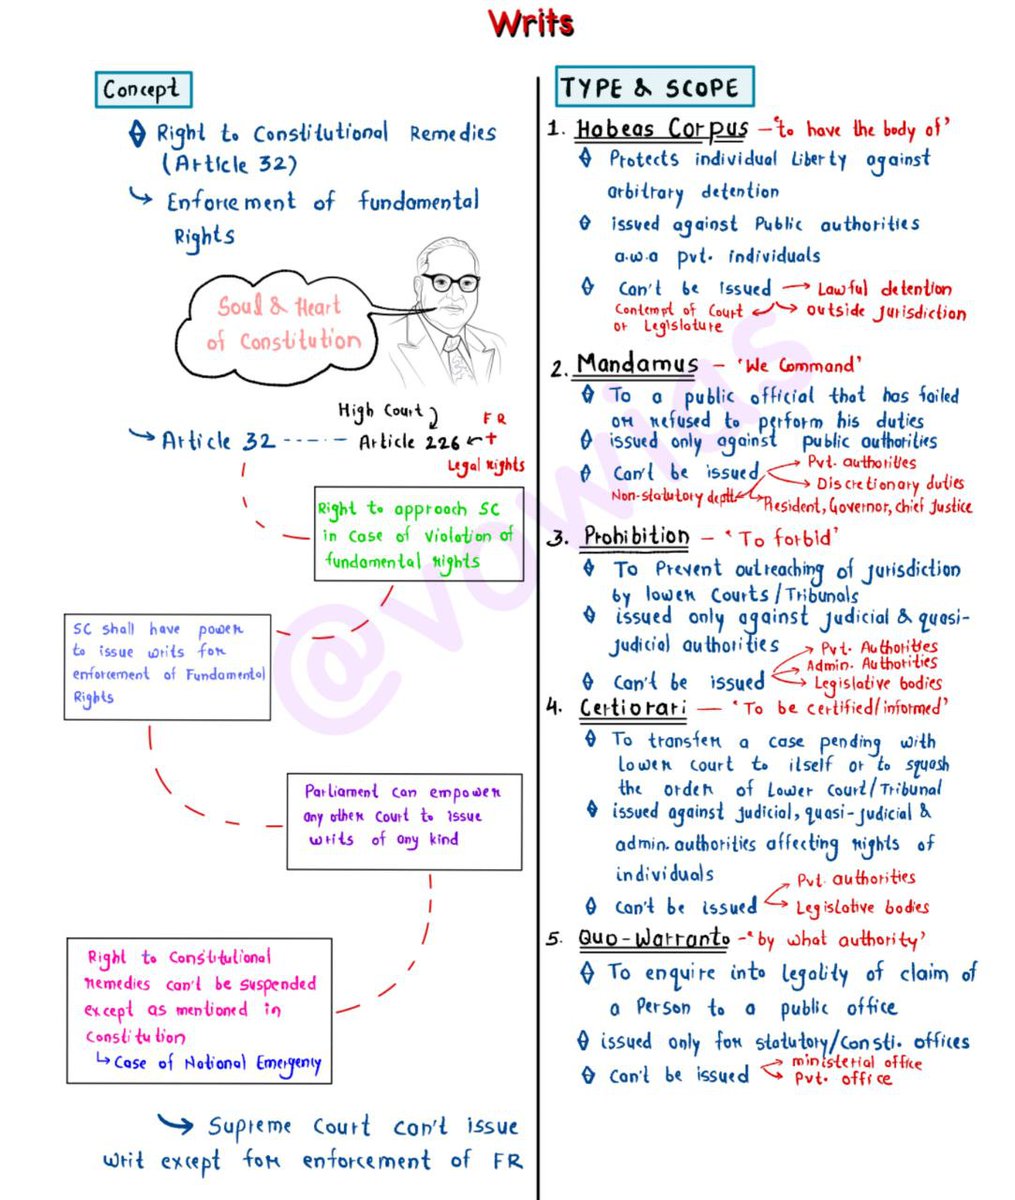 Writs
Concept
Right to Constitutional Remedies
(Article 32)
Enforcement of fundamental
Rights
Soul & Heart
of Constitution
High Court
FR
Article 32 ------ Article 226 +
Legal Rights
Right to approach SC
in case of violation of
fundamental rights
SC shall have power
to issue writs for
enforcement of Fundamental
Rights
Parliament can empower
any other court to issue
writs of any kind
Right to Constitutional
remedies can't be suspended
except as mentioned in
Constitution
Case of National Emergency
Supreme Court can't issue
writ except for enforcement of FR
TYPE & SCOPE
1. Habeas Corpus - 'to have the body of'
Protects individual liberty against
arbitrary detention
issued against Public authorities
a.w.a pvt. individuals
Can't be issued → Lawful detention
Contempt of Court outside jurisdiction
or Legislature
2. Mandamus - 'We Command'
To a public official that has failed
or refused to perform his duties
issued only against public authorities
Can't be issued Pvt. authorities
Discretionary duties
Non-statutory deptt President, Governor, chief Justice
3. Prohibition - 'To forbid'
To Prevent outreaching of jurisdiction
by lower Courts/Tribunals
issued only against judicial & quasi-
judicial authorities
Can't be issued Pvt. Authorities
Admin. Authorities
Legislative bodies
4. Certiorari - 'To be certified/informed'
To transfer a case pending with
lower court to itself or to squash
the order of Lower Court/Tribunal
issued against judicial, quasi-judicial &
admin. authorities affecting rights of
individuals
Can't be issued Pvt. authorities
Legislative bodies
5. Quo-Warranto - 'by what authority'
To enquire into legality of claim of
a Person to a public office
issued only for statutory/Consti. offices
Can't be issued ministerial office
Pvt. office
@vowias